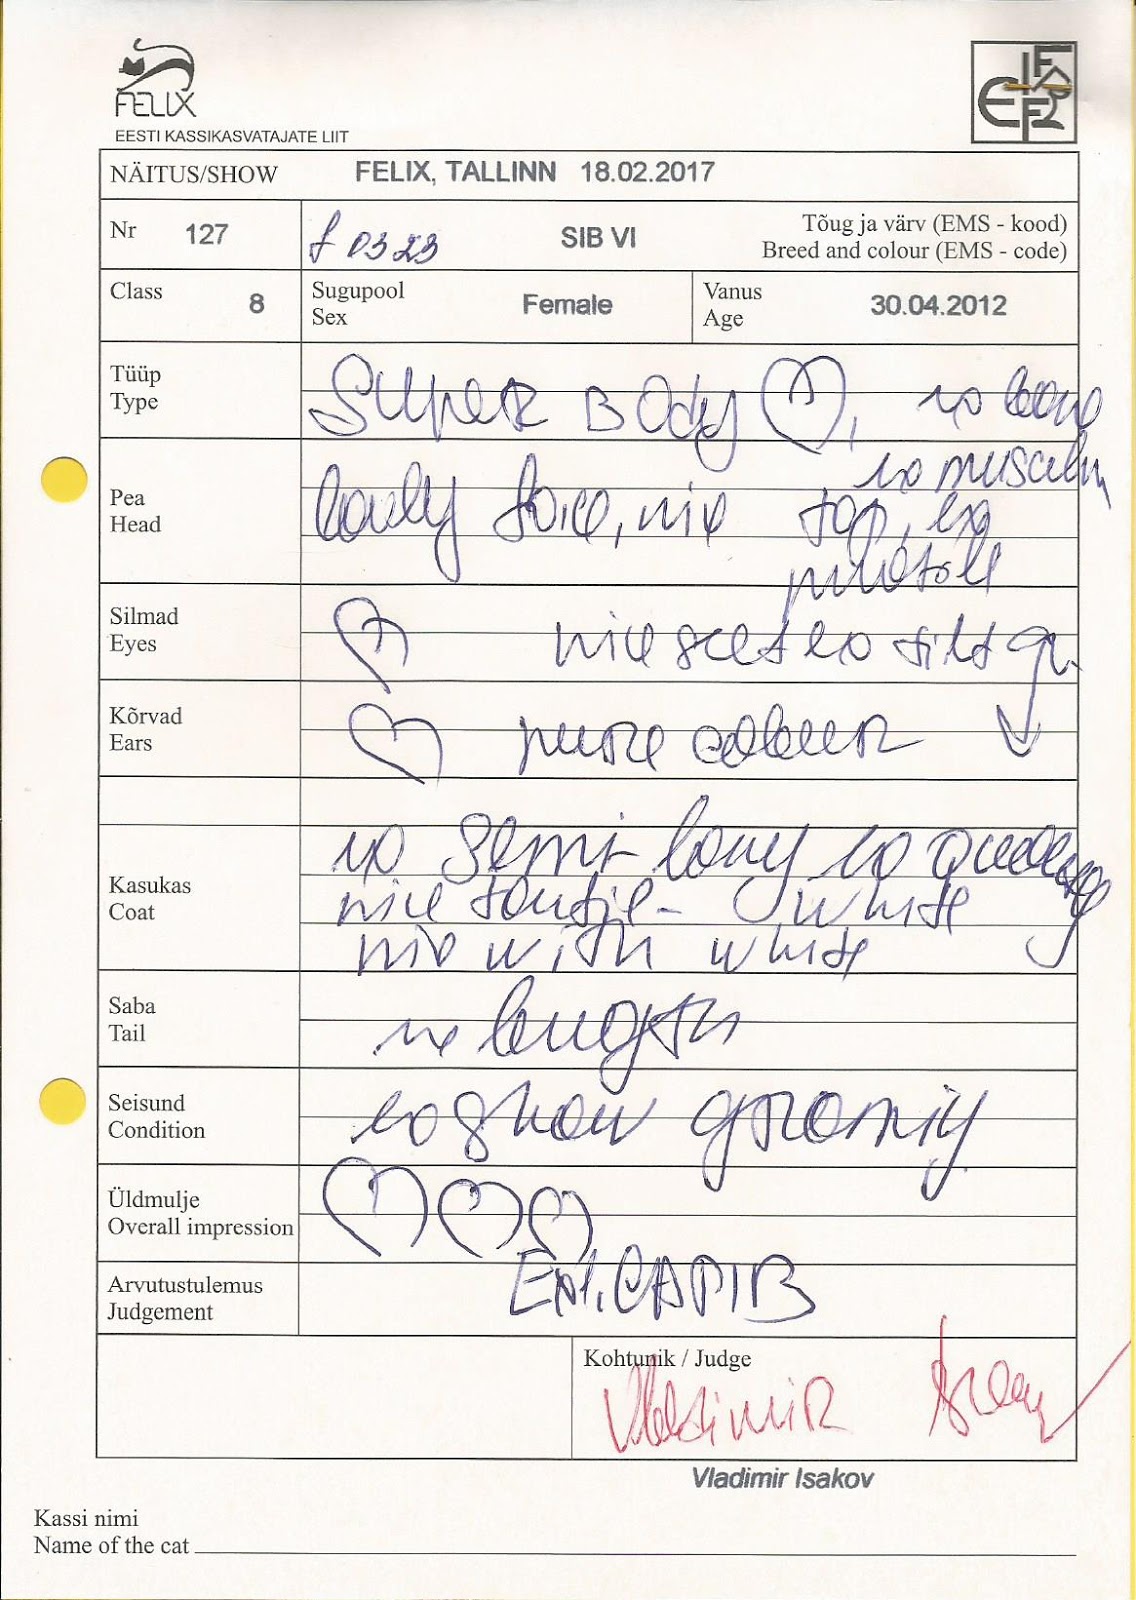 FELIX
EESTI KASSIKASVATAJATE LIIT
FIFe
NÄITUS/SHOW FELIX, TALLINN 18.02.2017
Nr 127 f 03 23 SIB VI Tõug ja värv (EMS - kood)
Breed and colour (EMS - code)
Class 8 Sugupool
Sex Female Vanus
Age 30.04.2012
Tüüp
Type
Super Body
ex muscular
Pea
Head
lovely face, nice top, ex
profile
Silmad
Eyes
nice set ex tilt
Kõrvad
Ears
pure colour
Kasukas
Coat
ex semi long ex
nice tortie - white
nice with white
Saba
Tail
ex length
Seisund
Condition
ex show
Üldmulje
Overall impression
Arvutustulemus
Judgement
Ex1. CAPIB
Kohtunik / Judge
Vladimir
Vladimir Isakov
Kassi nimi
Name of the cat